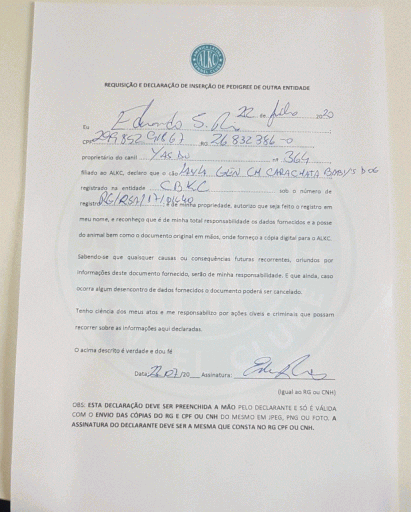 ALKC
REQUISIÇÃO E DECLARAÇÃO DE INSERÇÃO DE PEDIGREE DE OUTRA ENTIDADE
22 de Julho 2020
Eu Eduardo S.
CPF RG 26832386-0
proprietário do canil YASDU nº 364
filiado ao ALKC, declaro que o cão GÜN CH CARACHATA BOBY'S DOG
registrado na entidade CBKC sob o número de
registro é de minha propriedade, autorizo que seja feito o registro em
meu nome, e reconheço que é de minha total responsabilidade os dados fornecidos e a posse
do animal bem como o documento original em mãos, onde forneço a cópia digital para o ALKC.
Sabendo-se que quaisquer causas ou consequências futuras recorrentes, oriundos por
informações deste documento fornecido, serão de minha responsabilidade. E que ainda, caso
ocorra algum desencontro de dados fornecidos o documento poderá ser cancelado.
Tenho ciência dos meus atos e me responsabilizo por ações cíveis e criminais que possam
recorrer sobre as informações aqui declaradas.
O acima descrito é verdade e dou fé
Data 22/07/20 Assinatura:
(Igual ao RG ou CNH)
OBS: ESTA DECLARAÇÃO DEVE SER PREENCHIDA A MÃO PELO DECLARANTE E SÓ É VÁLIDA
COM O ENVIO DAS CÓPIAS DO RG E CPF OU CNH DO MESMO EM JPEG, PNG OU FOTO. A
ASSINATURA DO DECLARANTE DEVE SER A MESMA QUE CONSTA NO RG CPF OU CNH.